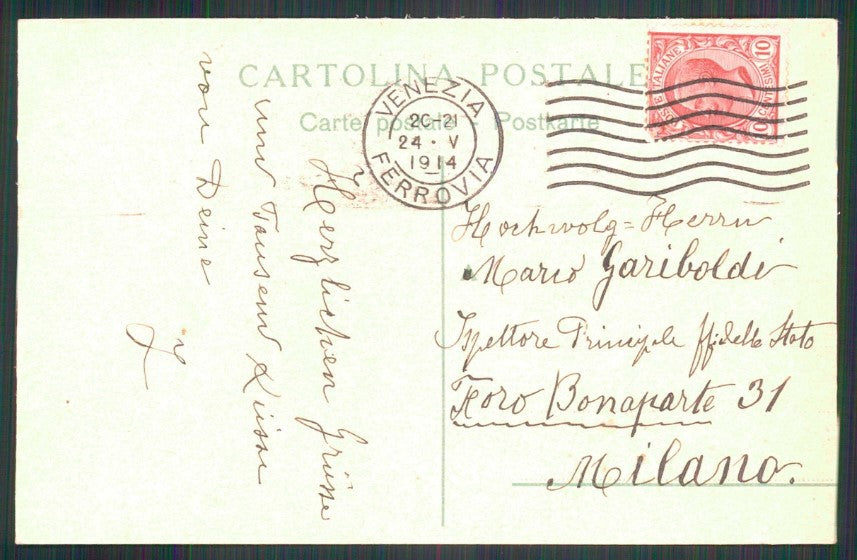 CARTOLINA POSTALE
Carte postale - Postkarte
VENEZIA
20-21
24 · V
1914
FERROVIA
10
10
Herzlichen Grüsse
und Tausend Küsse
von Deine
Hochwolg= Herrn
Mario Gariboldi
Ispettore Principale ff. delle Stato
Foro Bonaparte 31
Milano.